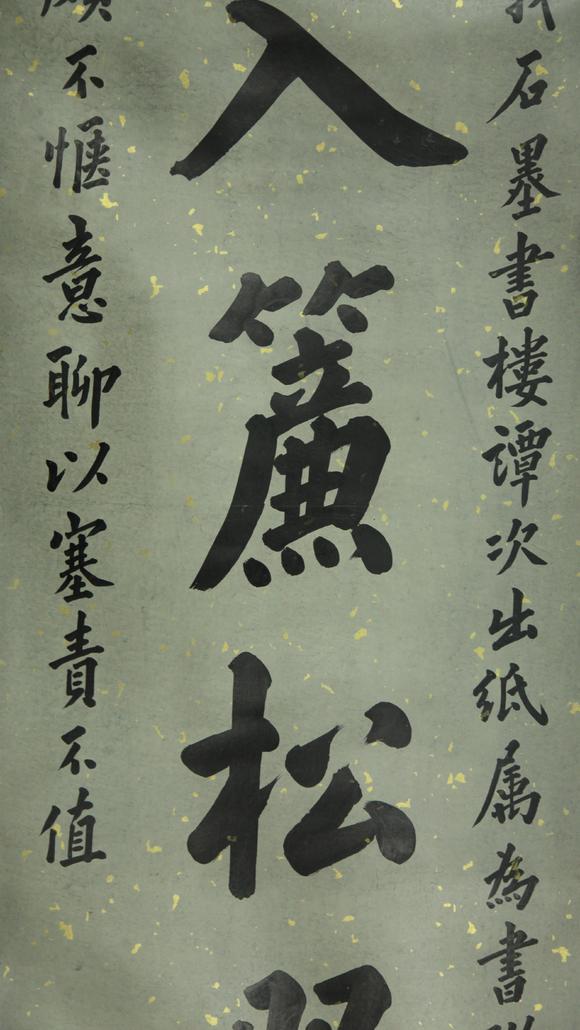 石墨書樓譚次出紙属為書
入簾松
不惬意聊以塞責不值